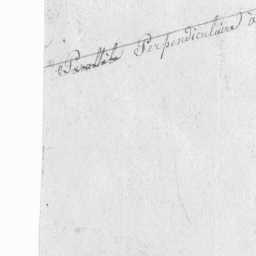 Parallèle Perpendiculaire à